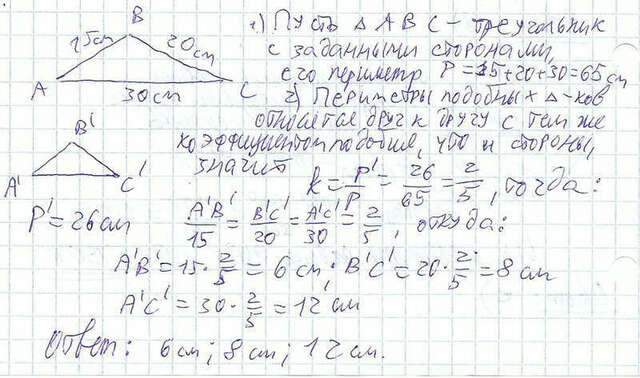 B
15см 20см
A 30см C
1) Пусть △ ABC - треугольник
с заданными сторонами,
его периметр P = 15+20+30=65 см
2) Периметры подобных △-ков
относятся друг к другу с тем же
коэффициентом подобия, что и стороны,
значит
k = P'/P = 26/65 = 2/5, тогда:
B'
A' C'
P' = 26 см
A'B'/15 = B'C'/20 = A'C'/30 = 2/5, откуда:
A'B' = 15 · 2/5 = 6 см; B'C' = 20 · 2/5 = 8 см
A'C' = 30 · 2/5 = 12 см
Ответ: 6 см; 8 см; 12 см.